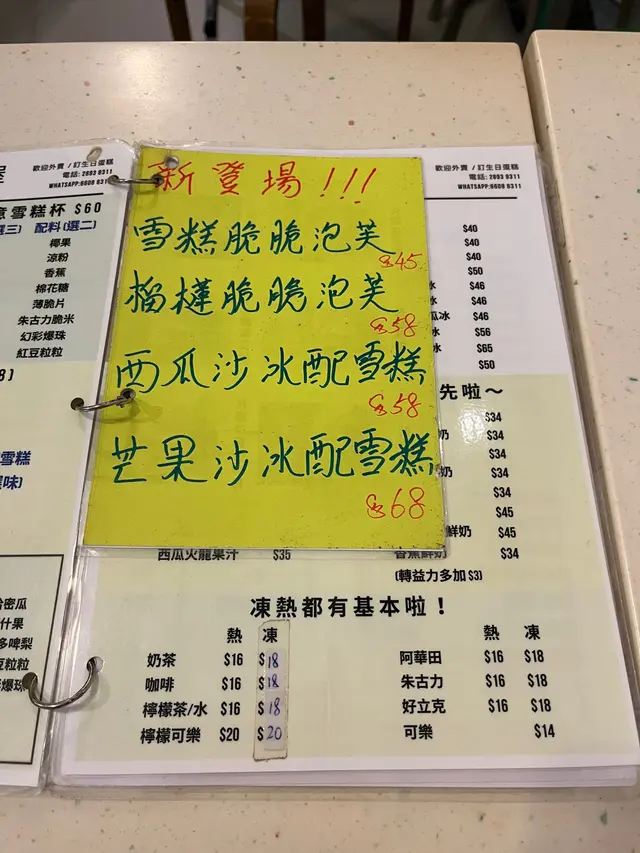 歡迎外賣 / 訂生日蛋糕
電話: 2893 8311
WHATSAPP:6608 8311
雪糕杯 $60
配料(選二)
椰果
涼粉
香蕉
棉花糖
薄脆片
朱古力脆米
幻彩爆珠
紅豆粒粒
雪糕
密瓜
什果
多啤梨
豆粒粒
爆珠
新登場!!!
雪糕脆脆泡芙
$45
榴槤脆脆泡芙
$58
西瓜沙冰配雪糕
$58
芒果沙冰配雪糕
$68
歡迎外賣 / 訂生日蛋糕
電話: 2893 8311
WHATSAPP:6608 8311
$40
$40
$40
$50
冰 $46
$46
瓜冰 $46
冰 $56
$65
$50
先啦～
$34
奶 $34
$34
奶 $34
$34
$45
鮮奶 $45
西瓜火龍果汁 $35 香蕉鮮奶 $34
(轉益力多加 $3)
凍熱都有基本啦！
熱 凍
奶茶 $16 $18
咖啡 $16 $18
檸檬茶/水 $16 $18
檸檬可樂 $20 $20
熱 凍
阿華田 $16 $18
朱古力 $16 $18
好立克 $16 $18
可樂 $14